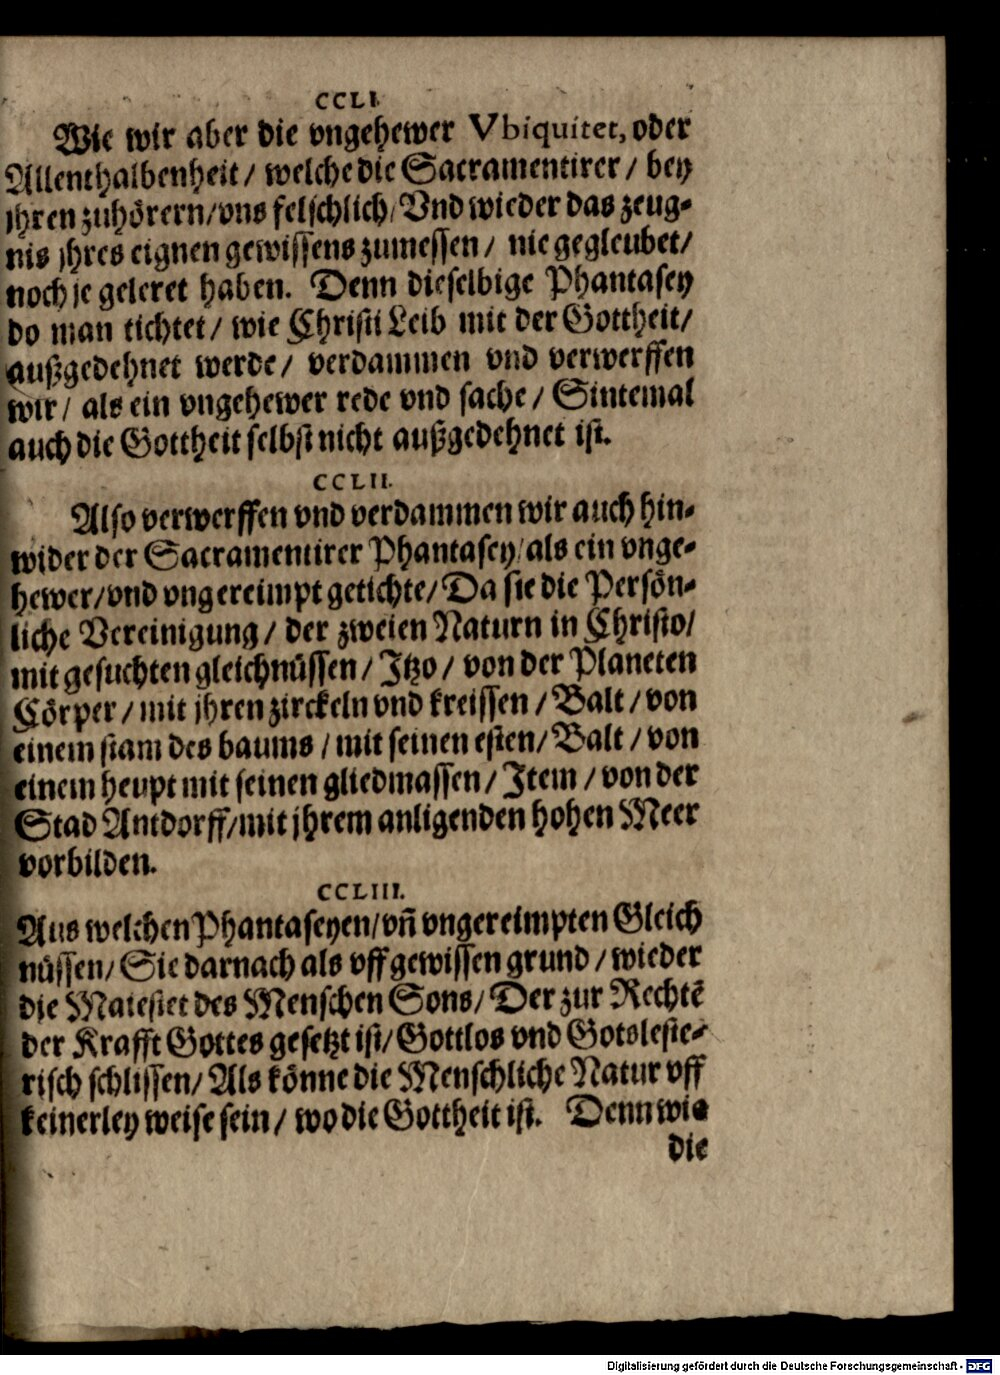 CCLI.
Wie wir aber die vngehewer Vbiquitet, oder
Allenthalbenheit / welche die Sacramentirer / bey
jhren zuhörern/vns felschlich/Vnd wieder das zeug-
nis jhres eignen gewissens zumessen / nie gegleubet/
noch je geleret haben. Denn dieselbige Phantasey
do man tichtet / wie Christi Leib mit der Gottheit/
außgedehnet werde / verdammen vnd verwerffen
wir / als ein vngehewer rede vnd sache / Sintemal
auch die Gottheit selbst nicht außgedehnet ist.
CCLII.
Also verwerffen vnd verdammen wir auch hin-
wider der Sacramentirer Phantasey/als ein vnge-
hewer/vnd vngereimpt getichte/Da sie die Persön-
liche Vereinigung / der zweien Naturn in Christo/
mit gesuchten gleichnüssen / Jtzo / von der Planeten
Cörper / mit jhren zirckeln vnd kreissen / Balt / von
einem stam des baums / mit seinen esten/ Balt / von
einem heupt mit seinen gliedmassen / Jtem / von der
Stad Antdorff/mit jhrem anligenden hohen Meer
vorbilden.
CCLIII.
Aus welchen Phantaseyen/vn̄ vngereimpten Gleich
nüssen/ Sie darnach als vff gewissen grund / wieder
die Maiestet des Menschen Sons/ Der zur Rechtē
der Krafft Gottes gesetzt ist/ Gottlos vnd Gotsleste-
risch schlissen/ Als könne die Menschliche Natur vff
keinerley weise sein / wo die Gottheit ist. Denn wie
die
Digitalisierung gefördert durch die Deutsche Forschungsgemeinschaft - DFG